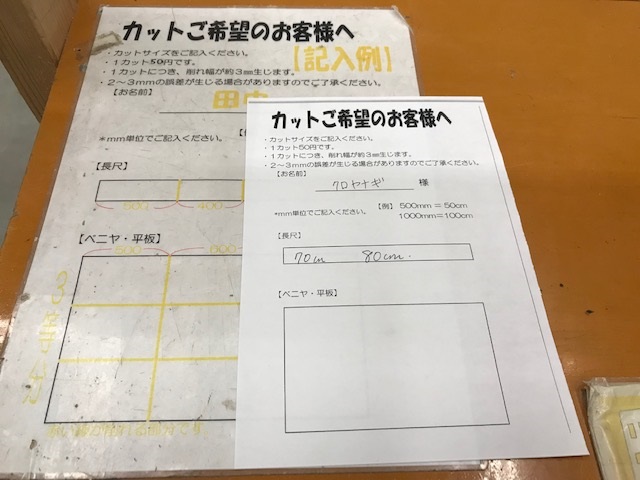 カットご希望のお客様へ
・カットサイズをご記入ください。
・1カット50円です。
・1カットにつき、削れ幅が約3㎜生じます。
・2～3mmの誤差が生じる場合がありますのでご了承ください。
【記入例】
【お名前】
田中
*mm単位でご記入ください。
【長尺】
500 400
【ベニヤ・平板】
500 600
カットご希望のお客様へ
・カットサイズをご記入ください。
・1カット50円です。
・1カットにつき、削れ幅が約3㎜生じます。
・2～3mmの誤差が生じる場合がありますのでご了承ください。
【お名前】
クロヤナギ 様
*mm単位でご記入ください。
【例】 500mm = 50cm
1000mm=100cm
【長尺】
70cm 80cm.
【ベニヤ・平板】